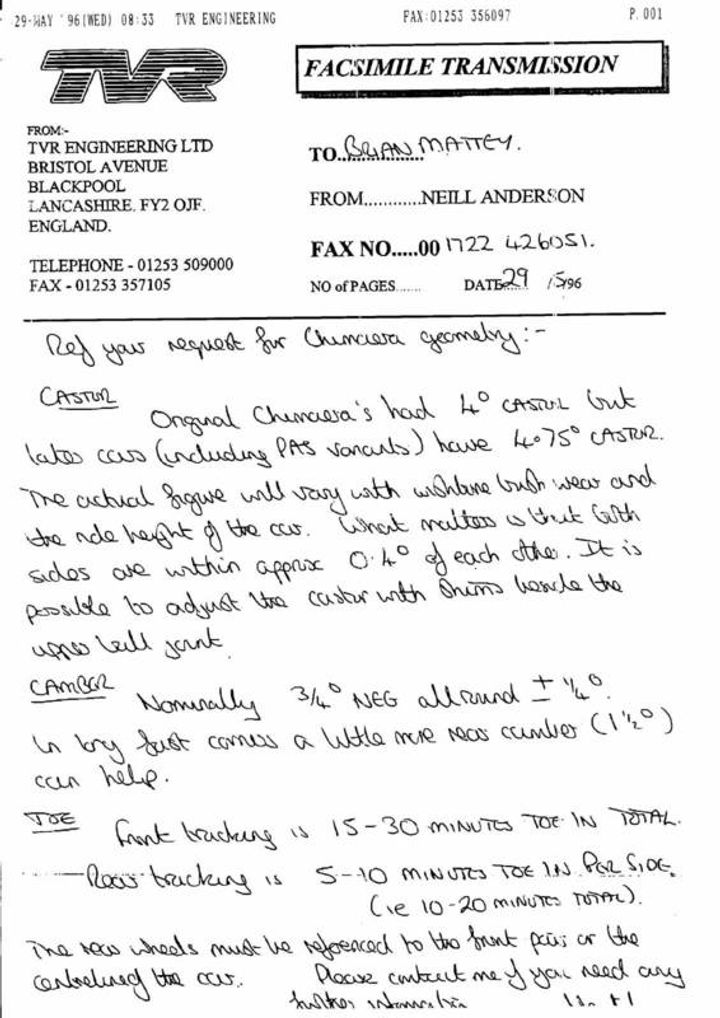 29-MAY '96(WED) 08:33 TVR ENGINEERING FAX:01253 356097 P.001
TVR
FACSIMILE TRANSMISSION
FROM:-
TVR ENGINEERING LTD
BRISTOL AVENUE
BLACKPOOL
LANCASHIRE. FY2 OJF.
ENGLAND.
TELEPHONE - 01253 509000
FAX - 01253 357105
TO..BRIAN MATTEY.
FROM............NEILL ANDERSON
FAX NO.....00 1722 426051.
NO of PAGES....... DATE 29 /5/96
Ref your request for Chimaera geometry:-
CASTOR
Original Chimaera's had 4° CASTOR but
later cars (including PAS variants) have 4.75° CASTOR.
The actual figure will vary with wishbone bush wear and
the ride height of the car. What matters is that both
sides are within approx 0.4° of each other. It is
possible to adjust the castor with shims beside the
upper ball joint.
CAMBER
Nominally 3/4° NEG all round ± 1/4°.
In very fast corners a little more rear camber (1 1/2°)
can help.
TOE
Front tracking is 15-30 MINUTES TOE IN TOTAL.
Rear tracking is 5-10 MINUTES TOE IN PER SIDE.
(ie 10-20 MINUTES TOTAL).
The rear wheels must be referenced to the front pair or the
centreline of the car. Please contact me if you need any
further information